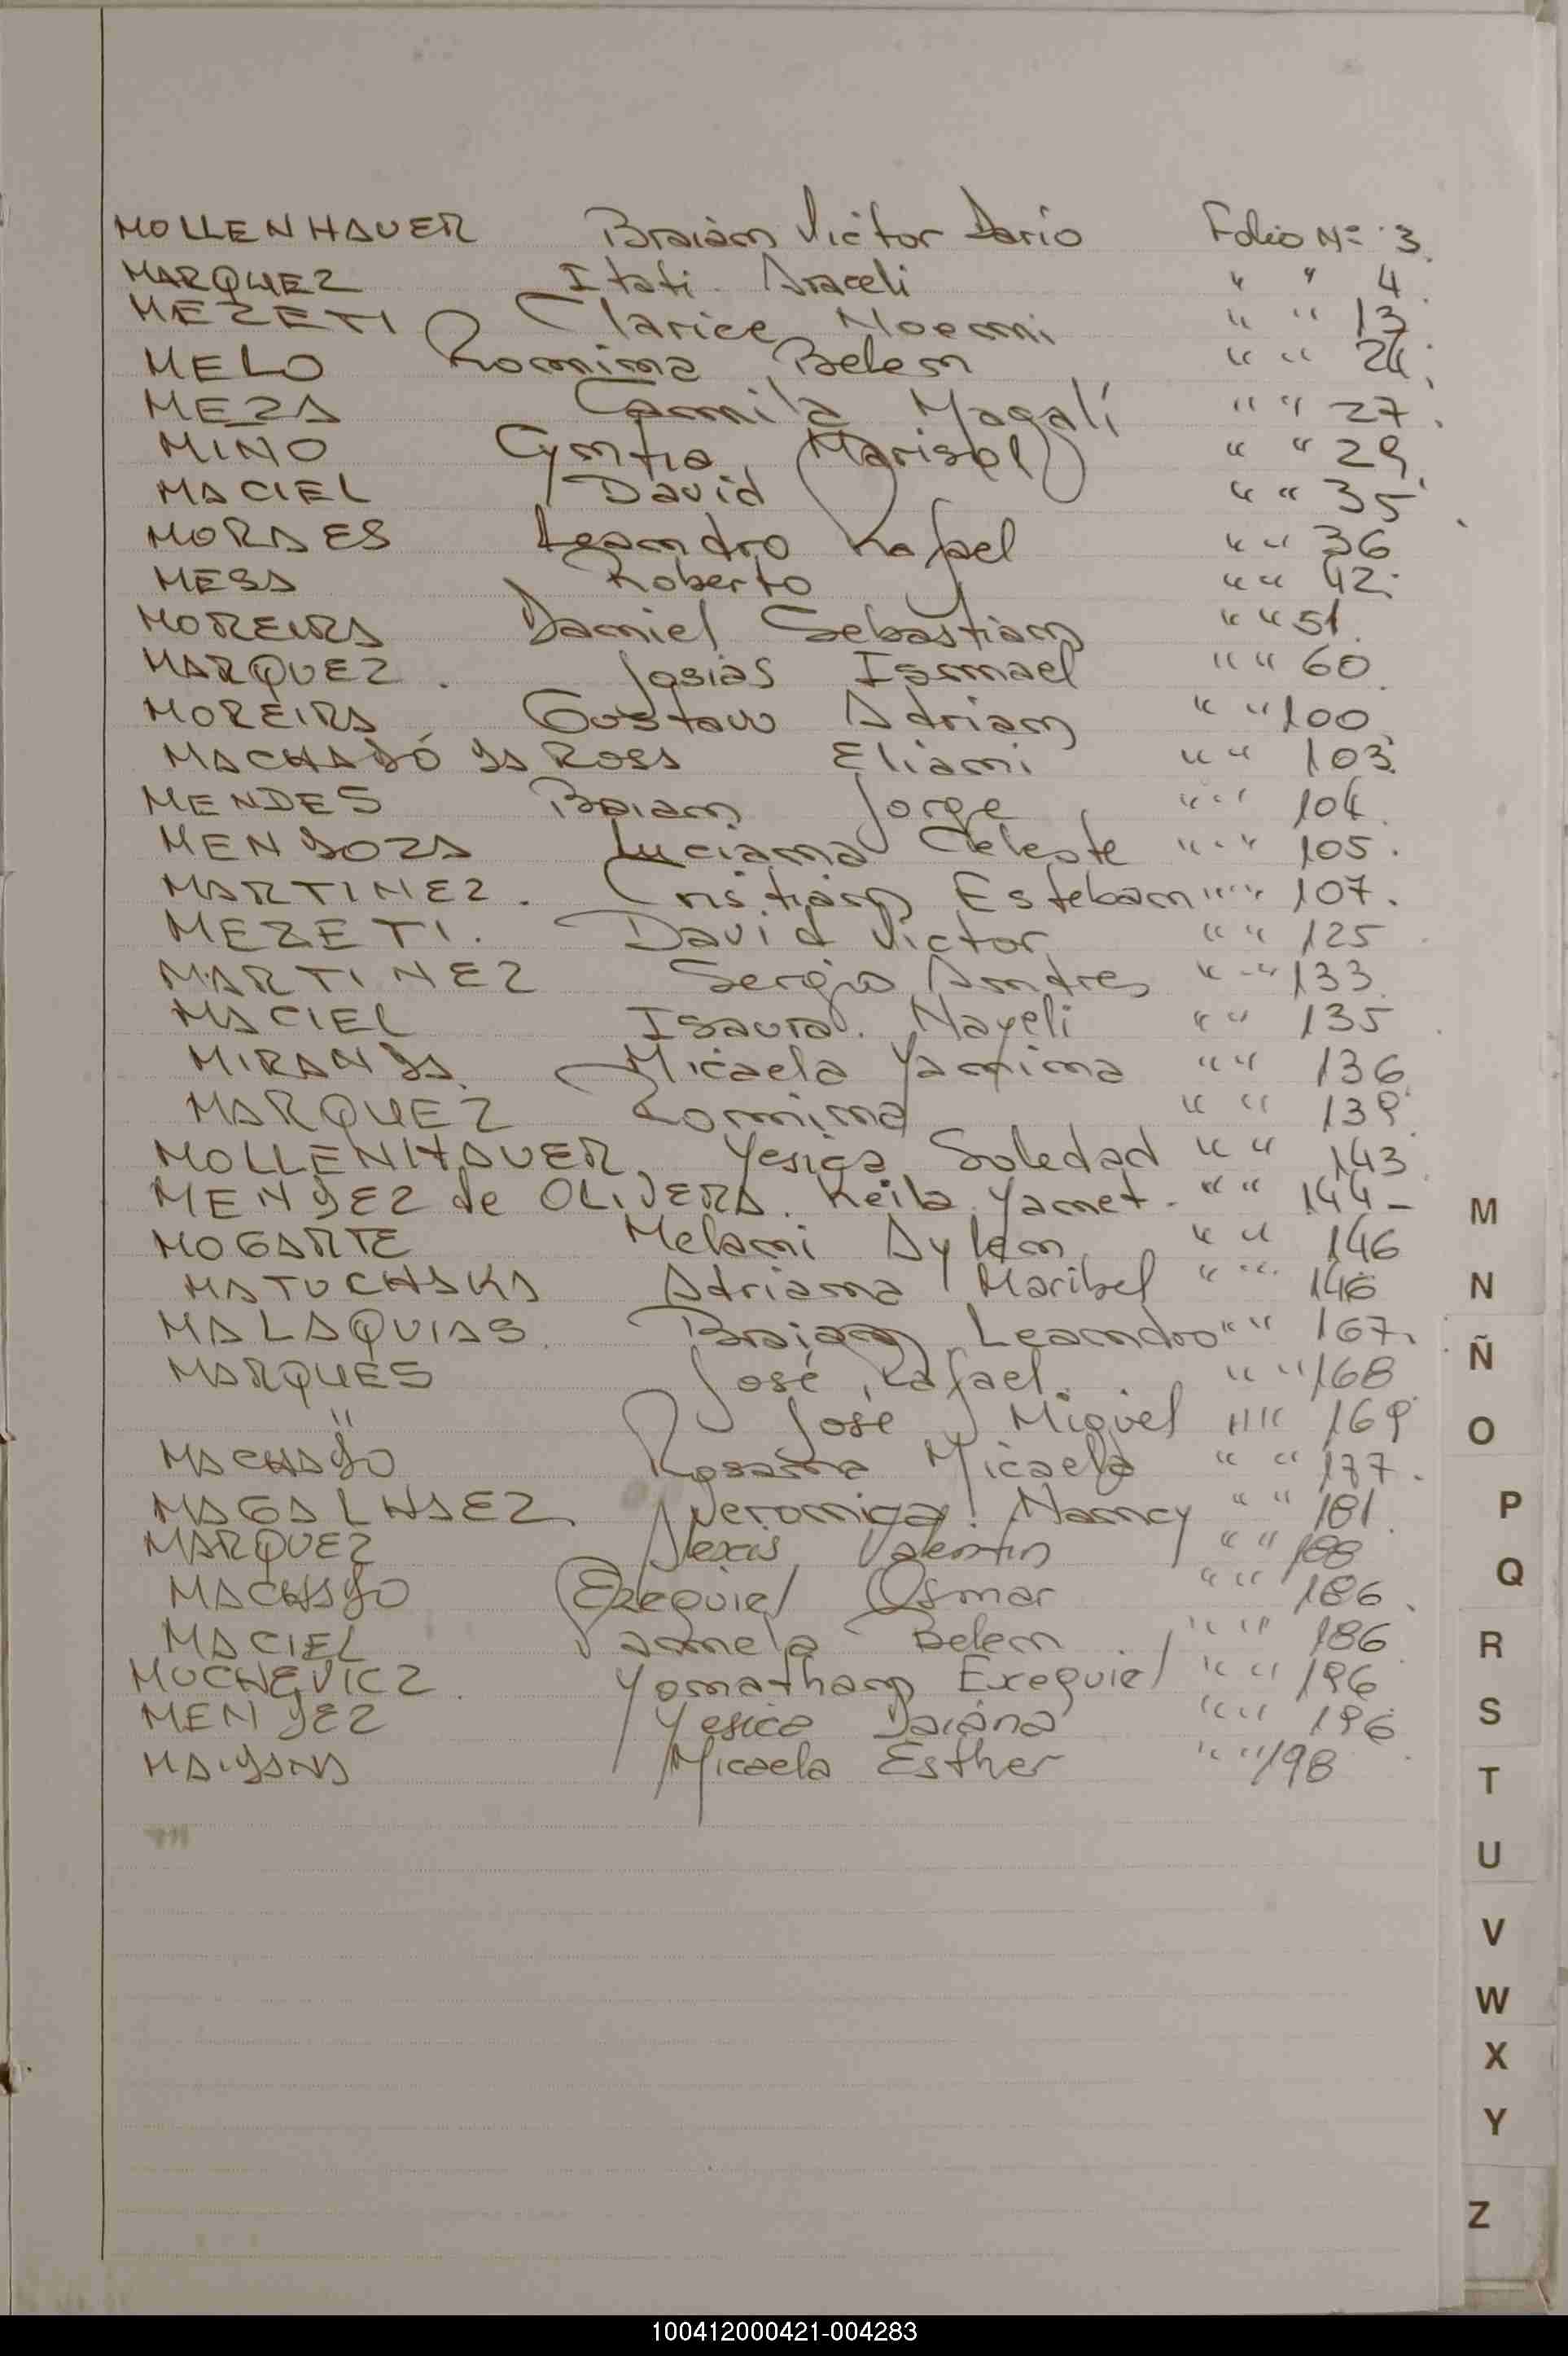 MOLLENHAUER Braian Victor Dario Folio Nº 3.
MARQUEZ Itati Araceli " " 4.
MEZETI Clarice Noemi " " 13
MELO Romina Belen " " 24.
MEZA Camila Magalí " " 27.
MIÑO Cyntia Marisol " " 29
MACIEL David " " 35
MORAES Leandro Rafael " " 36
MESA Roberto " " 42.
MOREIRA Daniel Sebastian " " 51.
MARQUEZ. Josias Ismael " " 60.
MOREIRA Gustavo Adrian " " 100
MACHADÓ DA ROSA Eliani " " 103.
MENDES Braian Jorge " " 104.
MENDOZA Luciana Celeste " " 105.
MARTINEZ. Cristian Esteban " " 107.
MEZETI. David Victor " " 125
MARTINEZ Sergio Andres " " 133.
MACIEL Isaura. Nayeli " " 135
MIRANDA Micaela Yanina " " 136
MARQUEZ Romina " " 139
MOLLENHAUER. Yesica Soledad " " 143
MENDEZ de OLIVERA. Keila Yanet. " " 144-
MOGARTE Melani Aylen " " 146
MATUCHAKA Adriana Maribel " " 146
MALAQUIAS. Braian Leandro " " 167.
MARQUES José Rafael. " " 168
" José Miguel " " 169
MACHADO Rosana Micaela " " 177.
MAGALHAEZ. Veronica Nancy " " 181.
MARQUEZ Alexis Valentin " " 188
MACHADO Ezequiel Osmar " " 186.
MACIEL Pamela Belen " " 186
MUCHEVICZ. Yonathan Exequiel " " 196
MENDEZ Yesica Daiana " " 196
MAIDANA Micaela Esther " " 198
M
N
Ñ
O
P
Q
R
S
T
U
V
W
X
Y
Z
100412000421-004283